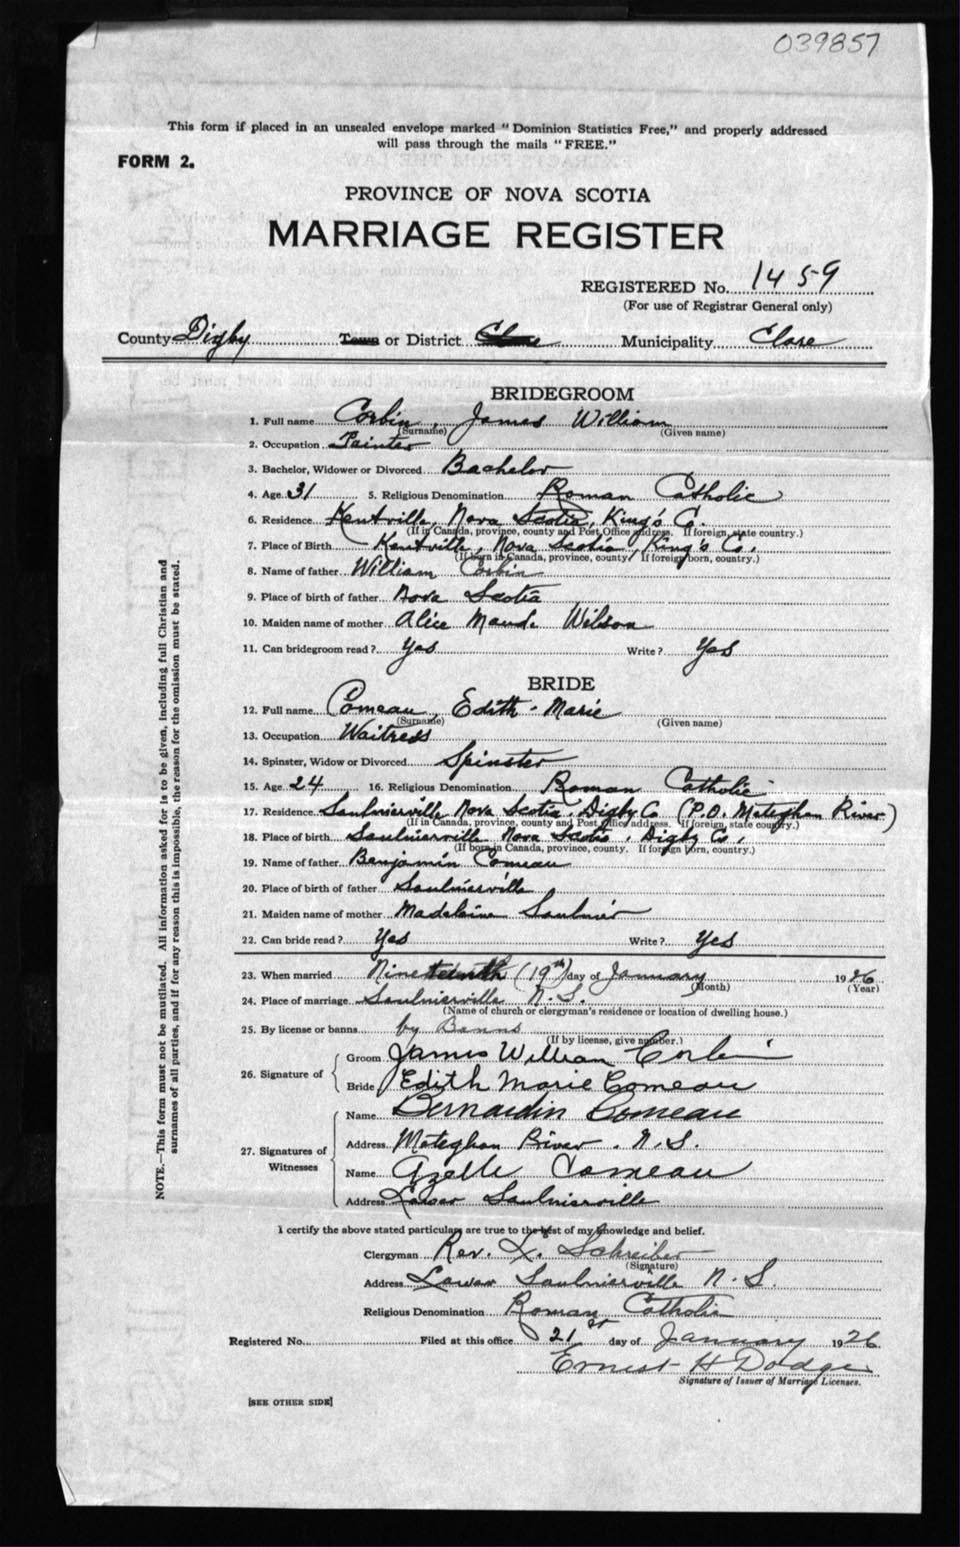 039857
This form if placed in an unsealed envelope marked "Dominion Statistics Free," and properly addressed
will pass through the mails "FREE."
FORM 2.
PROVINCE OF NOVA SCOTIA
MARRIAGE REGISTER
REGISTERED No. 1459
(For use of Registrar General only)
County Digby Town or District Clare Municipality Clare
BRIDEGROOM
1. Full name Corbin, James William
(Surname) (Given name)
2. Occupation Painter
3. Bachelor, Widower or Divorced Bachelor
4. Age 31 5. Religious Denomination Roman Catholic
6. Residence Kentville, Nova Scotia, King's Co.
(If in Canada, province, county and Post Office address. If foreign, state country.)
7. Place of Birth Kentville, Nova Scotia, King's Co.
(If born in Canada, province, county. If foreign born, country.)
8. Name of father William Corbin
9. Place of birth of father Nova Scotia
10. Maiden name of mother Alice Maude Wilson
11. Can bridegroom read? Yes Write? Yes
BRIDE
12. Full name Comeau, Edith-Marie
(Surname) (Given name)
13. Occupation Waitress
14. Spinster, Widow or Divorced Spinster
15. Age 24 16. Religious Denomination Roman Catholic
17. Residence Saulnierville Nova Scotia, Digby Co (P.O. Meteghan River)
(If in Canada, province, county and Post Office address. If foreign, state country.)
18. Place of birth Saulnierville Nova Scotia, Digby Co,
(If born in Canada, province, county. If foreign born, country.)
19. Name of father Benjamin Comeau
20. Place of birth of father Saulnierville
21. Maiden name of mother Madeleine Saulnier
22. Can bride read? Yes Write? Yes
23. When married Nineteenth (19th) day of January 1926
(Month) (Year)
24. Place of marriage Saulnierville N.S.
(Name of church or clergyman's residence or location of dwelling house.)
25. By license or banns by Banns
(If by license, give number.)
26. Signature of Groom James William Corbin
Bride Edith Marie Comeau
27. Signatures of Witnesses Name Bernardin Comeau
Address Meteghan River. N.S.
Name Azelle Comeau
Address Lower Saulnierville
I certify the above stated particulars are true to the best of my knowledge and belief.
Clergyman Rev. L. Schreiber
(Signature)
Address Lower Saulnierville N.S.
Religious Denomination Roman Catholic
Registered No. Filed at this office 21st day of January 1926
Ernest H Dodge
Signature of Issuer of Marriage Licenses.
[SEE OTHER SIDE]
NOTE.—This form must not be mutilated. All information asked for is to be given, including full Christian and
surnames of all parties, and if for any reason this is impossible, the reason for the omission must be stated.